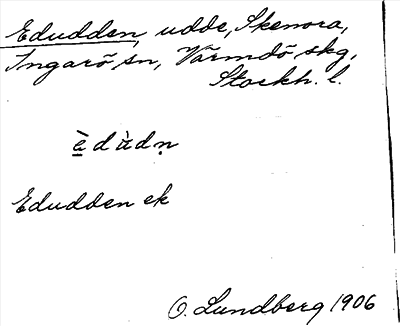 Edudden, udde, Skenora,
Ingarö sn, Värmdö skg,
Stockh. l.
è̲dùdṇ
Edudden ek
O. Lundberg 1906